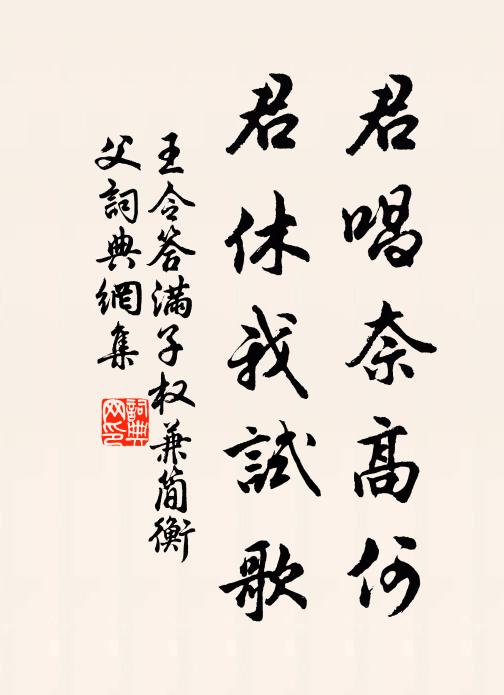 君唱奈高何
君休我試歌
王令答滿子权兼简衡
父詞典網集
詞典
网印